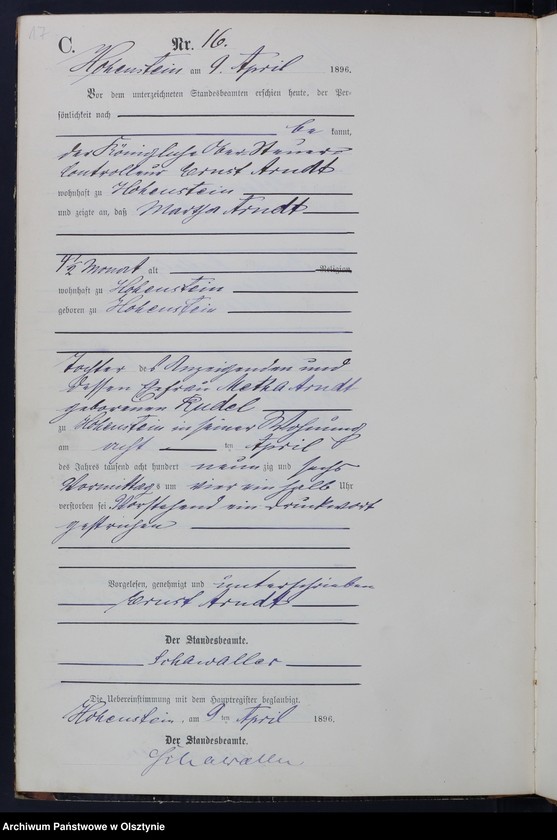 17
C. Nr. 16.
Hohenstein am 9. April 1896.
Vor dem unterzeichneten Standesbeamten erschien heute, der Per-
sönlichkeit nach
be kannt,
der Königliche Ober Steuer
Controlleur Ernst Arndt
wohnhaft zu Hohenstein
und zeigte an, daß Martha Arndt
4 1/2 Monat alt Religion,
wohnhaft zu Hohenstein
geboren zu Hohenstein
Tochter des Anzeigenden und
dessen Ehefrau Metha Arndt
geborenen Rudel
zu Hohenstein in seiner Wohnung
am acht ten April
des Jahres tausend acht hundert neun zig und sechs
Vormittags um vier ein halb Uhr
verstorben sei Vorstehend ein Druckwort
gestrichen
Vorgelesen, genehmigt und unterschrieben
Ernst Arndt
Der Standesbeamte.
Schawaller
Die Uebereinstimmung mit dem Hauptregister beglaubigt.
Hohenstein, am 9ten April 1896.
Der Standesbeamte.
Schawaller
Archiwum Państwowe w Olsztynie